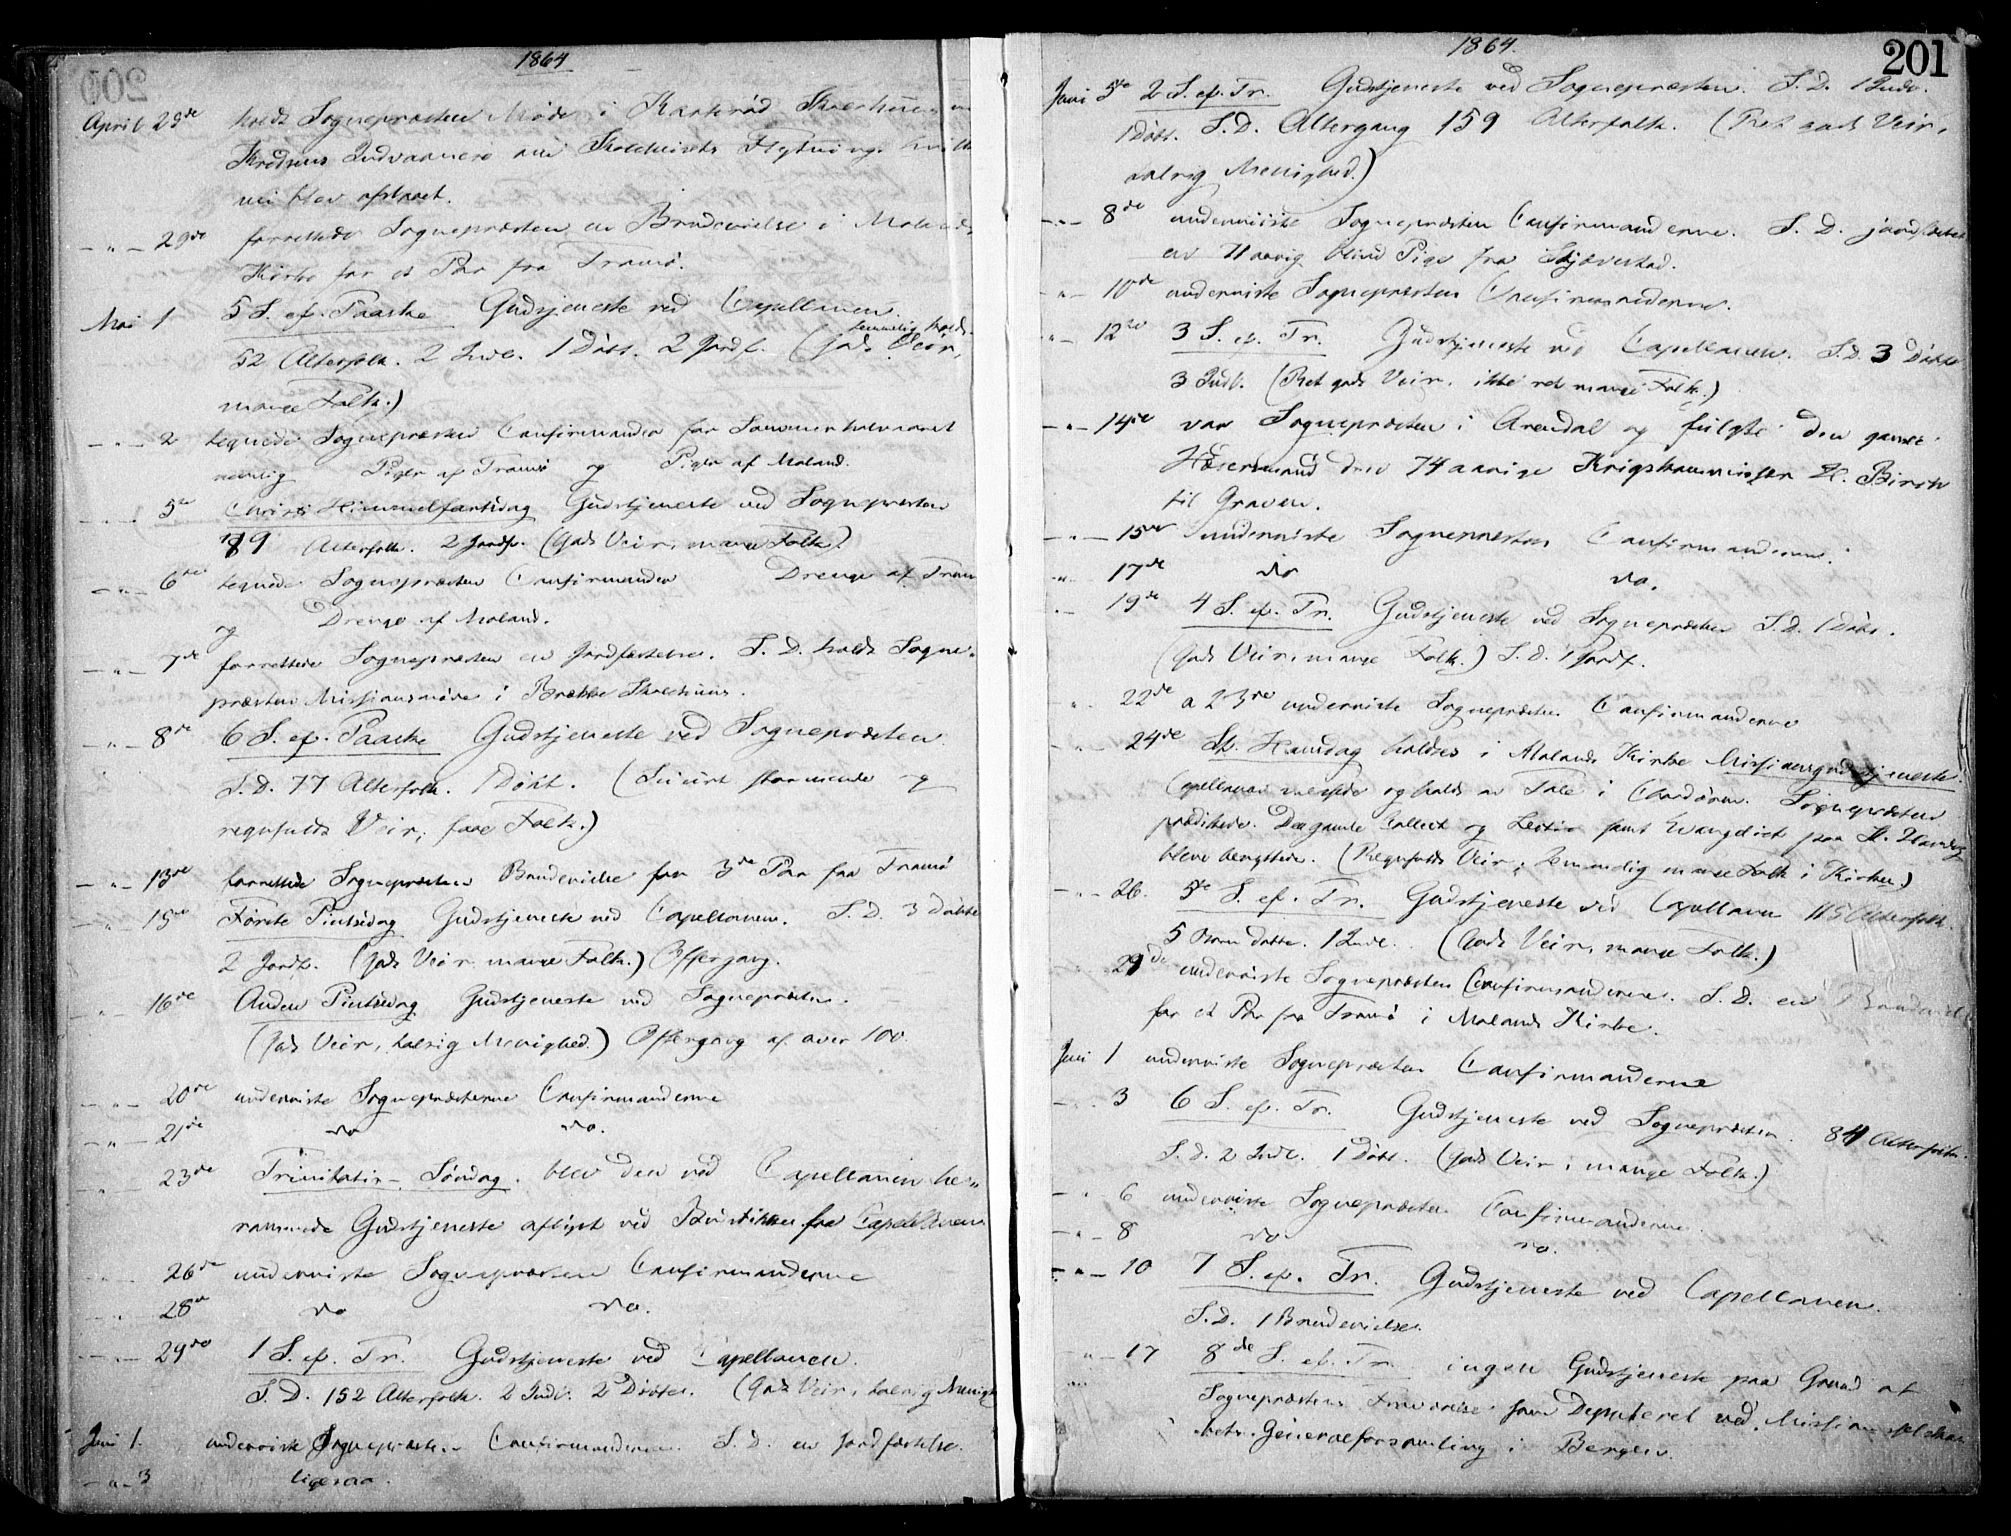 1864
April 29de holdt Sognepræsten Møde i Skoelhuus
Kredsens Indvaanere om Skoelehusets Flytning,
nei blev afstaaet.
— „ — 29de forrettede Sognepræsten en Brudevielse i Molands
Kirke for et Par fra Tromø.
Mai 1 5 S. ef. Paaske Gudstjeneste ved Capellanen.
52 Alterfolk. 2 Indl. 1 Døbt. 2 Jordf. (Godt Veir, temmelig koldt.
mange Folk.)
— „ — 2 tegnede Sognepræsten Confirmander for Sommerhalvaaret
nemlig Piger af Tromø og Piger af Moland.
— „ — 5te Christi Himmelfartsdag Gudstjeneste ved Sognepræsten
89 Alterfolk. 2 Jordf. (Godt Veir, mange Folk.)
— „ — 6te tegnede Sognepræsten Confirmander Drenge af Trom
og Drenge af Moland.
— „ — 7de forrettede Sognepræsten en Jordfæstelse. S. D. holdt Sogne-
præsten Missionsmøde i Brække Skoelhuus.
— „ — 8de 6 S. ef. Paaske Gudstjeneste ved Sognepræsten
S. D. 77 Alterfolk. 1 Døbt. (Suurt stormende og
regnfuldt Veir, faae Folk.)
— „ — 13de forrettede Sognepræsten Brudevielse for 3de Par fra Tromø
— „ — 15de Første Pintsedag Gudstjeneste ved Capellanen. S. D. 3 Døbte
2 Jordf. (Godt Veir mange Folk.) Offergang.
16de Anden Pintsedag Gudstjeneste ved Sognepræsten.
(Godt Veir, talrig Menighed.) Offergang af over 100.
— „ — 20de underviste Sognepræsterne Confirmanderne
— „ — 21de do do.
— „ — 23de Trinitatis-Søndag. blev den ved Capellanen be-
rammede Gudstjeneste aflyst ved fra Capellanen
26de underviste Sognepræsten Confirmanderne
28de do do.
— „ — 29de 1 S. ef. Tr. Gudstjeneste ved Capellanen.
S. D. 152 Alterfolk. 2 Indl. 2 Døbte. (Godt Veir, talrig Menigh
Juni 1. underviste Sognepræsten Confirmanderne. S. D. en Jordfæstelse.
— „ — 3 ligesaa.
1864.
201
Juni 5te 2 S. ef. Tr. Gudstjeneste ved Sognepræsten. S. D. 1 Indl.
1 Døbt. S. D. Altergang 159 Alterfolk. (Ret godt Veir,
talrig Menighed.)
— „ — 8de underviiste Sognepræsten Confirmanderne. S. D. jordfæstet
en 11 aarig blind Pige fra Skjæverstad.
„ — 10de underviste Sognepræsten Confirmanderne.
„ — 12te 3 S. ef. Tr. Gudstjeneste ved Capellanen. S. D. 3 Døbte
3 Indl. (Ret godt Veir, ikke ret mange Folk.)
— „ — 14de var Sognepræsten i Arendal og fulgte den gamle
Hædersmand den 74 aarige Krigskommissær H. Birch
til Graven.
— „ — 15de underviste Sognepræsten Confirmanderne.
— „ — 17de do do.
— „ — 19de 4 S. ef. Tr. Gudstjeneste ved Sognepræsten S. D. 1 Døbt.
(Godt Veir, mange Folk.) S. D. 1 Jordf.
„ 22de a 23de underviste Sognepræsten Confirmanderne
„ — 24de St. Hansdag holdtes i Molands Kirke Missionsgudstjeneste.
Capellanen messede og holdt en Tale i Chordøren. Sognepræsten
prædikede. Den gamle Collect og Lectie samt Evangeliet paa St. Hansdag
bleve benyttede. (Regnfuldt Veir, temmelig mange Folk i Kirken.)
— „ — 26. 5te S. ef. Tr. Gudstjeneste ved Capellanen 115 Alterfolk.
5 Børn døbte. 1 Indl. (Godt Veir, mange Folk.)
29de underviste Sognepræsten Confirmanderne. S. D. en Brudevielse
for et Par fra Tromø i Molands Kirke.
Juni 1 underviste Sognepræsten Confirmanderne
— „ — 3 6 S. ef. Tr. Gudstjeneste ved Sognepræsten. 84 Alterfolk.
S. D. 2 Indl. 1 Døbt. (Godt Veir, mange Folk.)
— „ 6 underviste Sognepræsten Confirmanderne.
— „ — 8 do do.
— „ — 10 7 S. ef. Tr. Gudstjeneste ved Capellanen.
S. D. 1 Brudevielse.
„ — 17 8de S. ef. Tr. ingen Gudstjeneste paa Grund af
Sognepræstens Fraværelse som Deputeret ved Missionsselskab
bets Generalforsamling i Bergen.